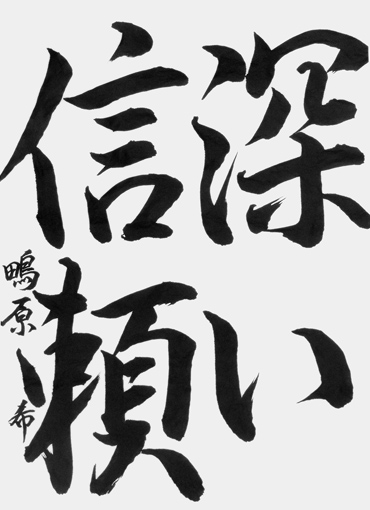 深い
信頼
鴫原一希